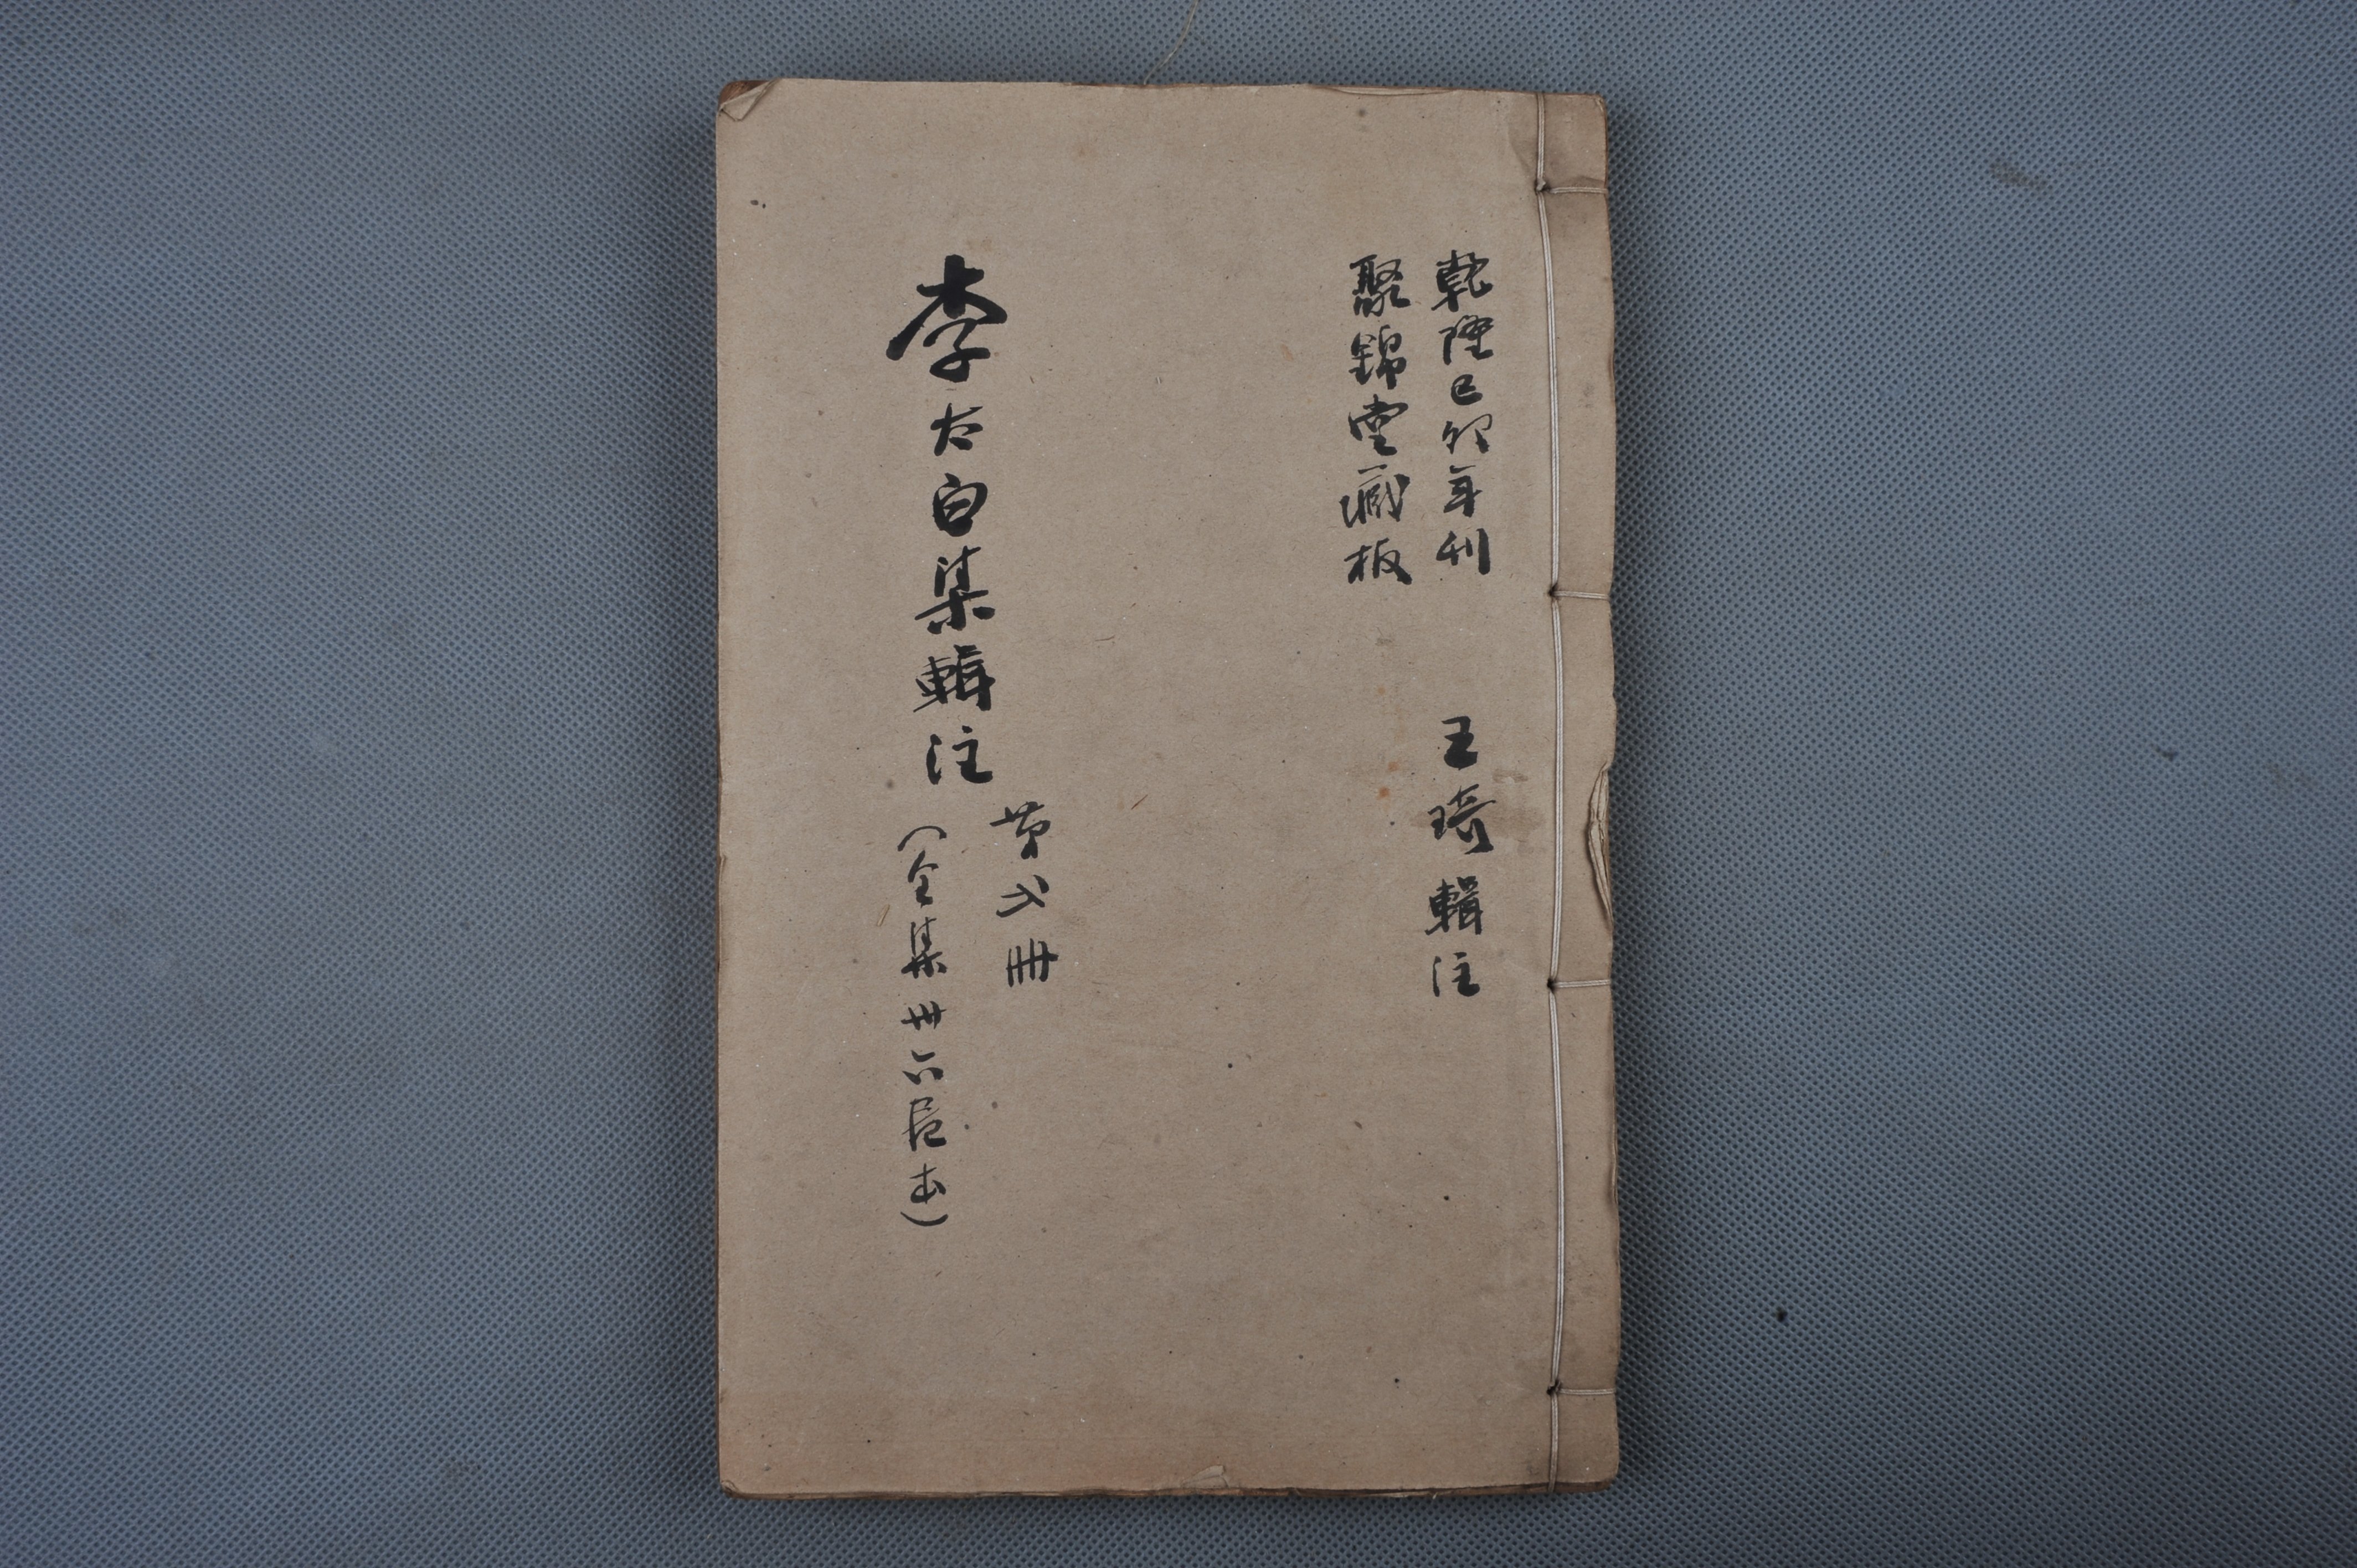 乾隆己卯年刊
王琦輯注
聚錦堂藏板
李太白集輯注
第弍冊
(全集卅六卷本)